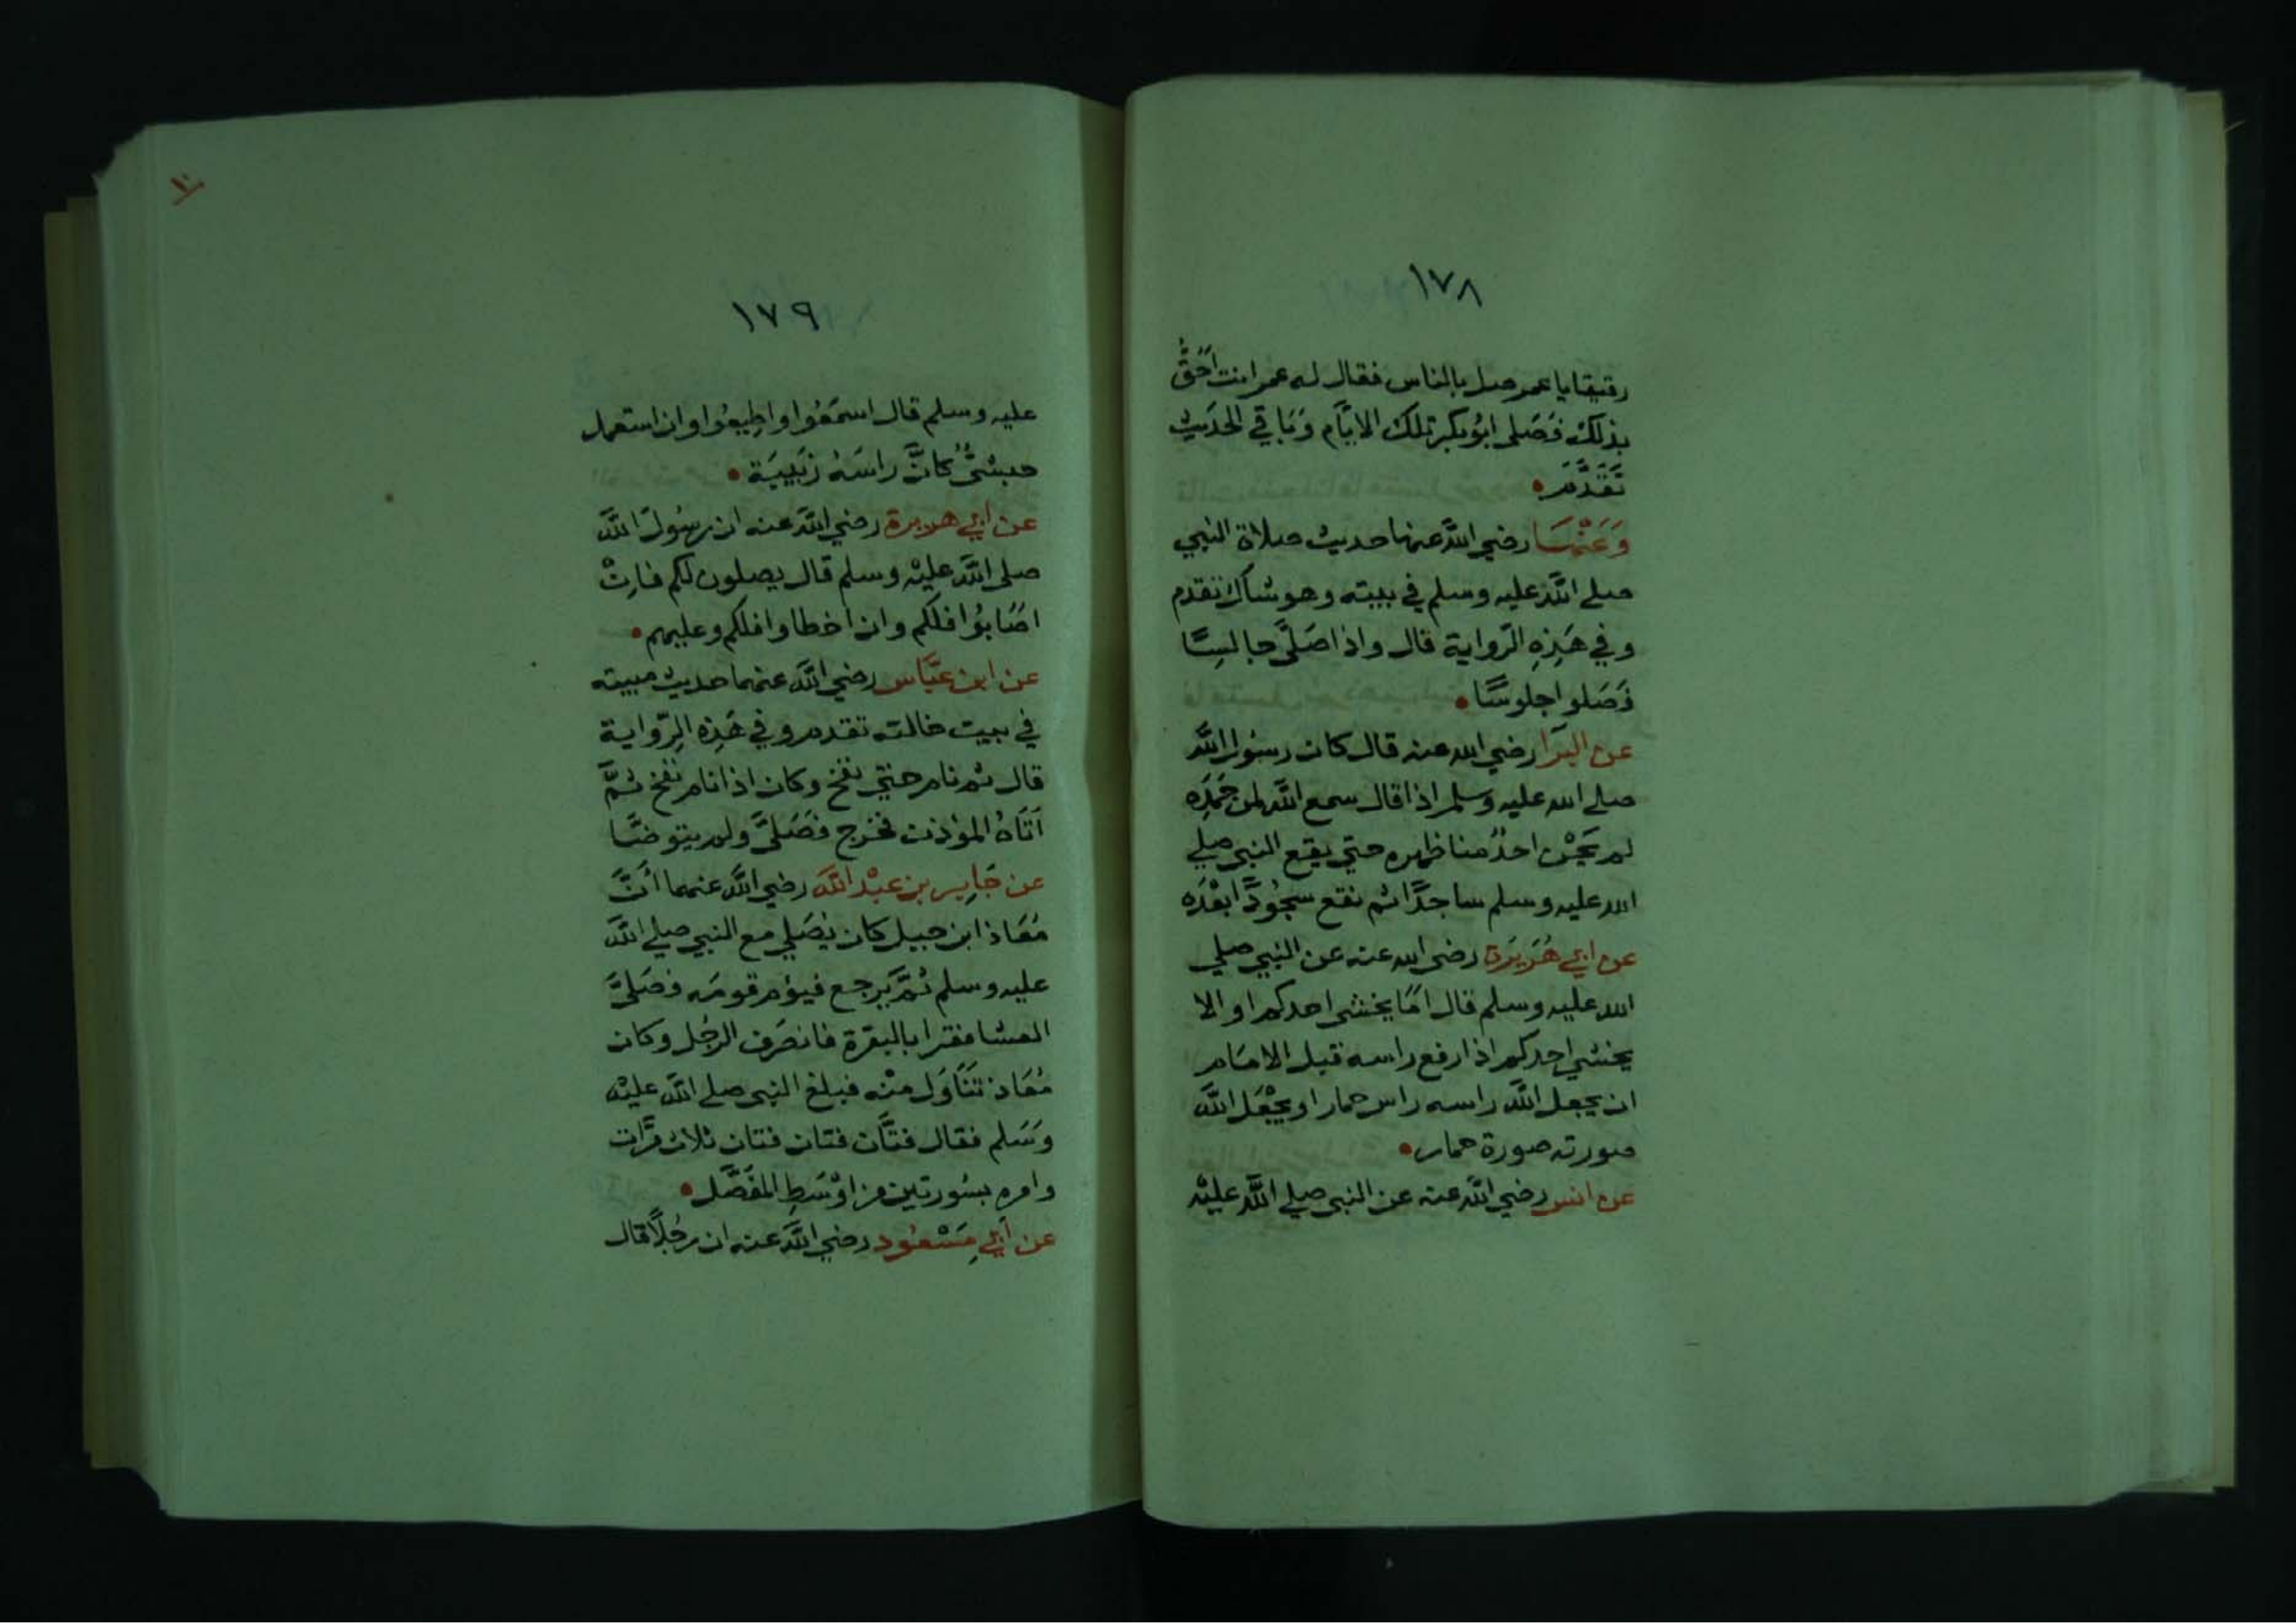 ١٧٨
رقيقا يا عمر صل بالناس فقال له عمر انت اَحَقُّ
بذلك فَصَلى ابُو بكر تلك الايَّام وَبَاقي الحَديث
تَقَدَّمَ
وَعَنْهَا رضي اللَّه عنها حديث صلاة النبي
صلے اللَّه عليه وسلم في بيته وهو شاك تقدم
وفي هَذِهِ الرّواية قال واذا صَلَّى جالِسًا
فَصَلوا جلوسًا
عن البَرَا رضي الله عنه قال كان رسُول اللَّه
صلے الله عليه وسلم اذا قال سمع اللَّه لمن حَمِدَه
لم يَحْن احدٌ منا ظهره حتي يقع النبي صلي
الله عليه وسلم ساجدًا ثم نقع سجُودًا بَعْدَه
عن ابي هُرَيرَة رضي الله عنه عن النبي صلي
الله عليه وسلم قال امَا يخشى احدكم او الا
يخشي احدكم اذا رفع راسه قبل الامَام
ان يجعل اللَّه راسه راس حمار او يجْعَل اللَّه
صورته صورة حمار
عن انس رضي اللَّه عنه عن النبي صلے اللَّه عليْه
١٠
١٧٩
عليه وسلم قال اسمَعُوا واطِيعُوا وان استعمل
حبشيٌّ كانَّ راسَهُ زَبيبَة
عن ابي هريرة رضي اللَّه عنه ان رسُولَ اللَّه
صلى اللَّه عليْه وسلم قال يصلون لكم فاِنْ
اصَابُوا فلكم وان اخطاوا فلكم وعليهم
عن ابن عبَّاس رضي اللَّه عنهما حديث مبيته
في بيت خالته تقدم وفي هَذِه الرّواية
قال ثم نام حتي نفخ وكان اذا نام نفخ ثمَّ
اَتَاهُ المؤذن فخرج فَصَلىَّ ولم يتوضَّا
عن جَابِر بن عبْد اللَّه رضي اللَّه عنهما اَنَّ
مُعَاذ ابن جبل كان يُصَلي مع النبي صلے اللَّه
عليه وسلم ثُمَّ يَرجع فيؤم قومَه فصَلىَّ
العشا فقرا بالبقرَة فانصَرف الرجُل وكان
مُعَاذ تَنَاوَل منْه فبلغ النبي صلے اللَّه عليْه
وَسَلم فقال فتَّان فتان فتان ثلاث مرَّات
وامره بسُورتين من اوْسَطِ المفَصَّل
عن اَبِي مَسْعُود رضي اللَّه عنه ان رجُلًا قال